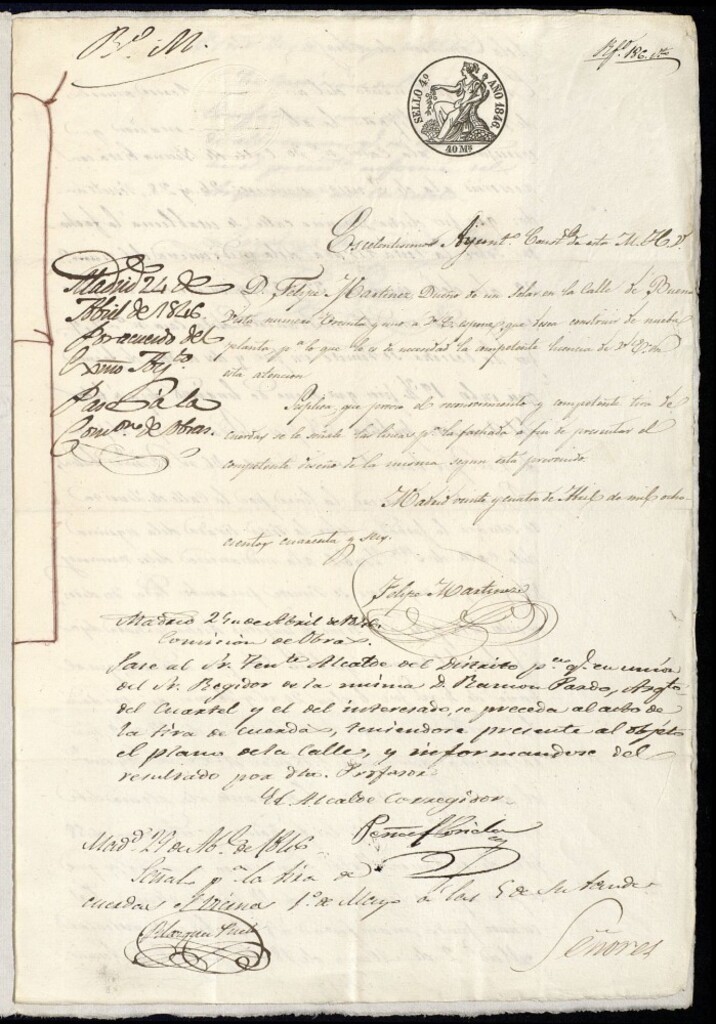 Rº. M.
SELLO 4º AÑO 1846.
40 Ms
Excelentisimo Ayuntº. Constl. de esta M. H. Vª.
Madrid 24 de
Abril de 1846.
Por acuerdo del
Exmo Aytº
Pase á la
Comon. de Obras.
D. Felipe Martinez Dueño de un Solar en la Calle de Buena
Vista numero treinta y uno a V. E. espone, que desea construir de nueba
planta, pª lo que le es de necesidad la competente licencia de V. E. en
esta atencion
Suplica que previo el reconocimiento y competente tira de
cuerdas se le señale las lineas pª la fachada a fin de presentar el
competente diseño de la misma segun está prevenido.
Madrid veinte y cuatro de Abril de mil ocho-
cientos cuarenta y seis.
Felipe Martinez
Madrid 25 de Abril de 1846.
Comision de Obras.
Pase al Sr. Tente Alcalde del Distrito pª q.e en union
del Sr. Regidor de la misma D. Ramon Pardo, Arqto
del Cuartel y el del interesado, se proceda al acto de
la tira de cuerdas, teniendose presente al objeto
el plano de la Calle, y informandose del
resultado por dho. Profesor
El Alcalde Corregidor
Peñaflorida
Madd. 29 de Ab.l de 1846
Señalo pª la tira de
cuerdas el 1º de Mayo á las 5 de su tarde
Señores